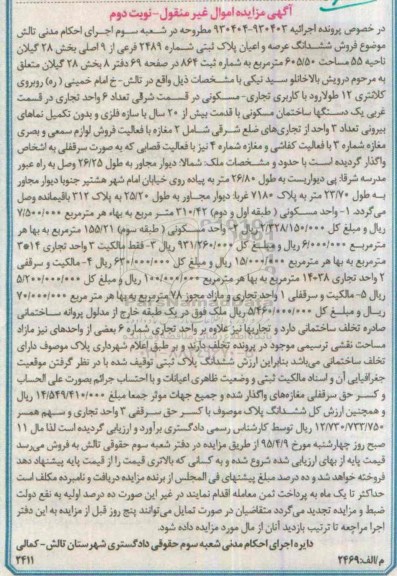 آگهی مزایده اموال غیر منقول-نوبت دوم
در خصوص پرونده اجرائیه ۹۳۰۴۰۳-۹۳۰۴۰۴ مطروحه در شعبه سوم اجرای احکام مدنی تالش
موضوع فروش ششدانگ عرصه و اعیان پلاک ثبتی شماره ۲۴۸۹ فرعی از ۹ اصلی بخش ۲۸ گیلان
ناحیه ۵۵ مساحت ۶۰۵/۵۰ مترمربع به شماره ثبت ۸۶۴ در صفحه ۶۹ دفتر ۸ بخش ۲۸ گیلان متعلق
به مرحوم درویش بالاخانلو سید نیکی با مشخصات ذیل واقع در تالش-خ امام خمینی (ره) روبروی
کلانتری ۱۲ طولارود با کاربری تجاری-مسکونی در قسمت شرقی تعداد ۶ واحد تجاری در قسمت
غربی یک دستگاه ساختمان مسکونی با قدمت بیش از ۲۰ سال با سازه فلزی و بدون تکمیل نماهای
بیرونی تعداد ۳ واحد از تجاری‌های ضلع شرقی شامل ۲ مغازه با فعالیت فروش لوازم سمعی و بصری
مغازه شماره ۳ با فعالیت کفاشی و مغازه شماره ۴ نیز با فعالیت قصابی که به صورت سرقفلی به اشخاص
واگذار گردیده است با حدود و مشخصات ملک: شمالا: دیوار مجاور به طول ۲۶/۲۵ وصل به راه عبور
مدرسه شرقا: پی دیواریست به طول ۲۶/۸۰ متر به پیاده روی خیابان امام شهر هشتپر جنوبا دیوار مجاور
به طول ۲۳/۷۰ متر به پلاک ۷۱۸۰ غربا: دیوار مجاور به طول ۲۵/۲۰ به پلاک ۳۱۲ باقیمانده وصل
می‌گردد. ۱- واحد مسکونی (طبقه اول و دوم) ۳۱۰/۴۲ متر مربع به بهاء هر مترمربع ۷/۵۰۰/۰۰۰
ریال و مبلغ کل ۲/۳۲۸/۱۵۰/۰۰۰ ریال ۲- واحد مسکونی (طبقه سوم) ۱۵۵/۲۱ مترمربع به بها هر
مترمربع ۶/۰۰۰/۰۰۰ ریال و مبلغ کل ۹۳۱/۲۶۰/۰۰۰ ریال ۳- فقط مالکیت ۳ واحد تجاری ۳@۱۴
مترمربع به بها هر مترمربع ۱۵/۰۰۰/۰۰۰ ریال و مبلغ کل ۶۳۰/۰۰۰/۰۰۰ ریال ۴- مالکیت و سرقفلی
۲ واحد تجاری ۱۴-۳۸ مترمربع به بها هر مترمربع ۱۰۰/۰۰۰/۰۰۰ ریال و مبلغ کل ۵/۲۰۰/۰۰۰/۰۰۰
ریال ۵- مالکیت و سرقفلی ۱ واحد تجاری و مازاد مجوز ۷۸ مترمربع به بها هر متر مربع ۷۰/۰۰۰/۰۰۰
ریال و مبلغ کل ۵/۴۶۰/۰۰۰/۰۰۰ ریال ملک فوق در یک طبقه خارج از مدلول پروانه ساختمانی
صادره تخلف ساختمانی دارد و تجاریها نیز علاوه بر واحد تجاری شماره ۶ بعضی از واحدهای نیز مازاد
مساحت نقشی ترسیمی موجود در پرونده تخلف دارند و بر طبق اعلام شهرداری پلاک موصوف دارای
تخلف ساختمانی می‌باشد بنابراین ارزش ششدانگ پلاک ثبتی توقیف شده با در نظر گرفتن موقعیت
جغرافیایی آن و اسناد مالکیت ثبتی و وضعیت ظاهری اعیانات و با احتساب جرائم بصورت علی الحساب
و کسر حق سرقفلی مغازه‌های واگذار شده و جمیع جهات موثر جمعا مبلغ ۱۴/۵۴۹/۴۱۰/۰۰۰ ریال
و همچنین ارزش کل ششدانگ پلاک موصوف با کسر حق سرقفی ۳ واحد تجاری و سهم همسر
۱۲/۷۳۰/۷۳۳/۷۵۰ ریال توسط کارشناس رسمی دادگستری برآورد و ارزیابی گردیده است لذا مال ۱۱
صبح روز چهارشنبه مورخ ۹۵/۴/۹ از طریق مزایده در دفتر شعبه سوم حقوقی تالش به فروش می‌رسد
قیمت پایه از بهای ارزیابی شده شروع شده و به کسانی که بالاتری قیمت را از قیمت پایه پیشنهاد دهد
فروخته خواهد شد و ده درصد مبلغ پیشنهای فی المجلس از برنده مزایده دریافت و نامبرده مکلف است
حداکثر تا یک ماه به پرداخت ثمن معامله اقدام نمایند در غیر این صورت ده درصد اولیه به نفع دولت
ضبط و مزایده تجدید می‌گردد متقاضیان در صورت تمایل می‌توانند پنج روز قبل از مزایده به این دفتر
اجرا مراجعه تا ترتیب بازدید آنان از مال مورد مزایده داده شود.
دایره اجرای احکام مدنی شعبه سوم حقوقی دادگستری شهرستان تالش-کمالی
م/الف:۲۴۶۹ ۲۴۱۱